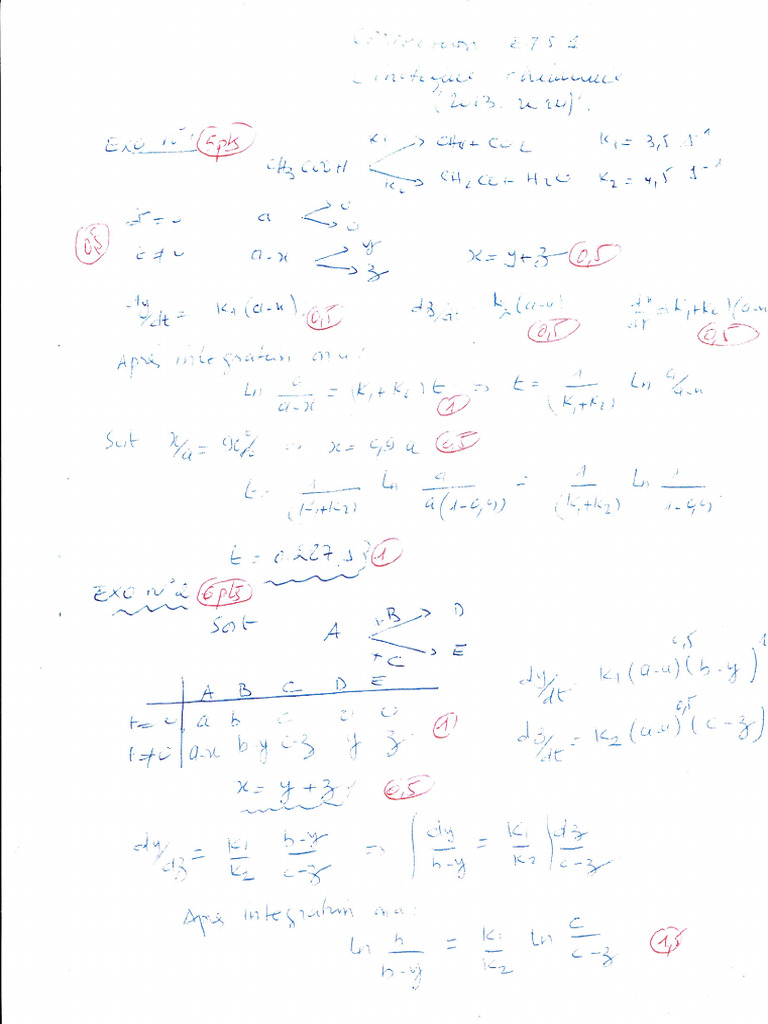 Correction
Cinétique chimique
(2013-2014).
EXO N°1 5pts CH3COOH K1 → CH4 + CO2 K1 = 3,5 s-1
K2 → CH2CO + H2O K2 = 4,5 s-1
0,5 t = 0 a 0 0
t ≠ 0 a-x y z x = y+z 0,5
dy/dt = K1 (a-x). 0,5 dz/dt = k2 (a-x) 0,5 dx/dt = (K1+K2)(a-x 0,5
Après integration on a :
Ln a/(a-x) = (K1+K2) t 1 => t = 1/(K1+K2) Ln a/a-x
Soit x/a = 90% => x = 0,9 a 0,5
t = 1/(K1+K2) Ln a/a(1-0,9) = 1/(K1+K2) Ln 1/1-0,9
t = 0.287 s 1
EXO N°2 6pts
Soit A +B → D
+C → E
A B C D E
t = 0 a b c 0 0 1
t ≠ 0 a-x b-y c-z y z
dy/dt = K1 (a-x)^0,5 (b-y)^1
dz/dt = K2 (a-x)^0,5 (c-z)
x = y + z 0,5
dy/dz = K1/K2 b-y/c-z => ∫ dy/b-y = K1/K2 ∫ dz/c-z
Après integration on a :
Ln b/b-y = K1/K2 Ln c/c-z 1,5